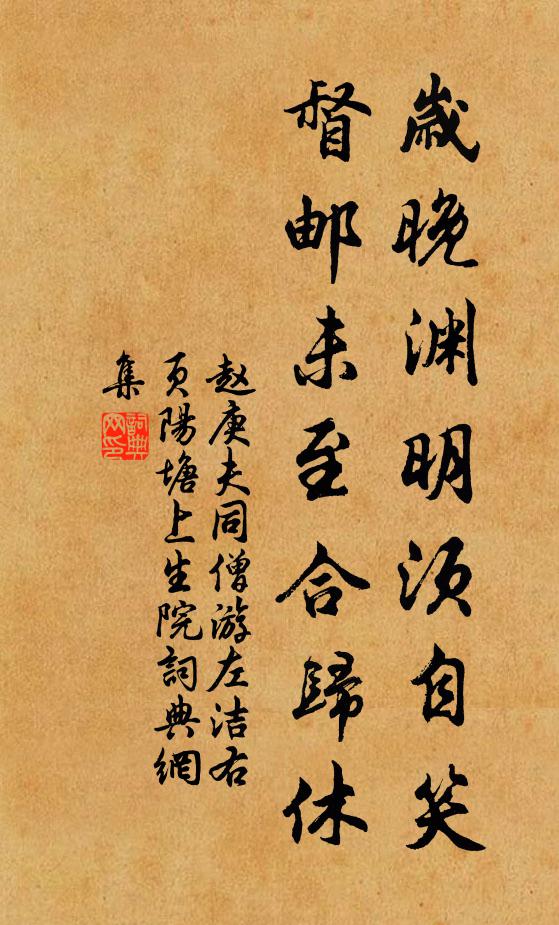 歲晚渊明須自笑
督邮未至合歸休
赵庚夫同僧游左洁右
页陽塘上生院詞典網
集
詞典
网印